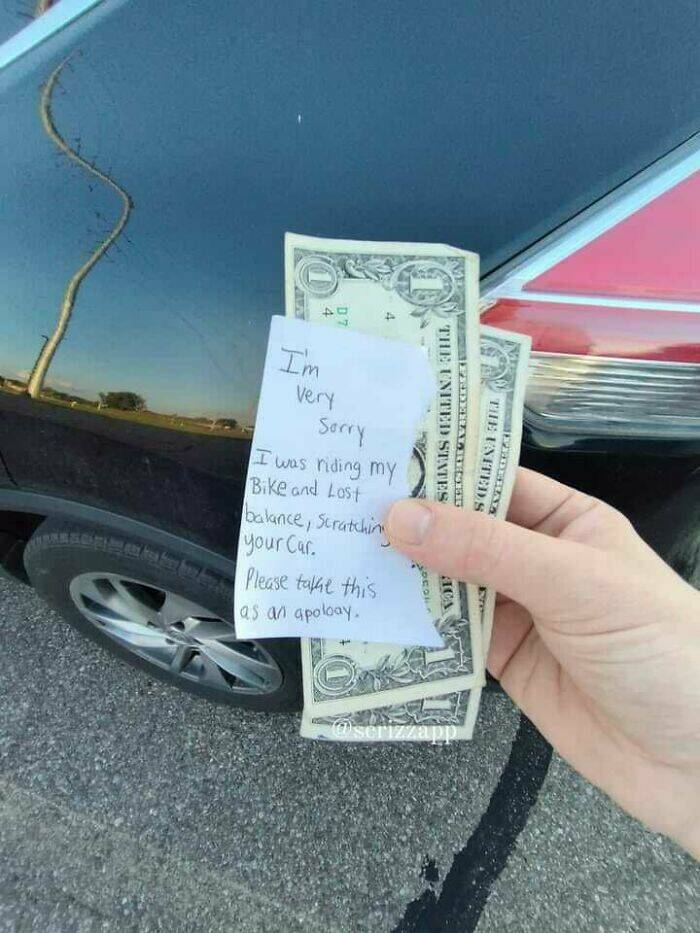 I'm
Very
Sorry
I was riding my
Bike and Lost
balance, Scratching
your Car.
Please take this
as an apoloay.
1
1
D7
4
4
THE UNITED STATES
ICA
THE UNITED S
1
1
@scrizzapp